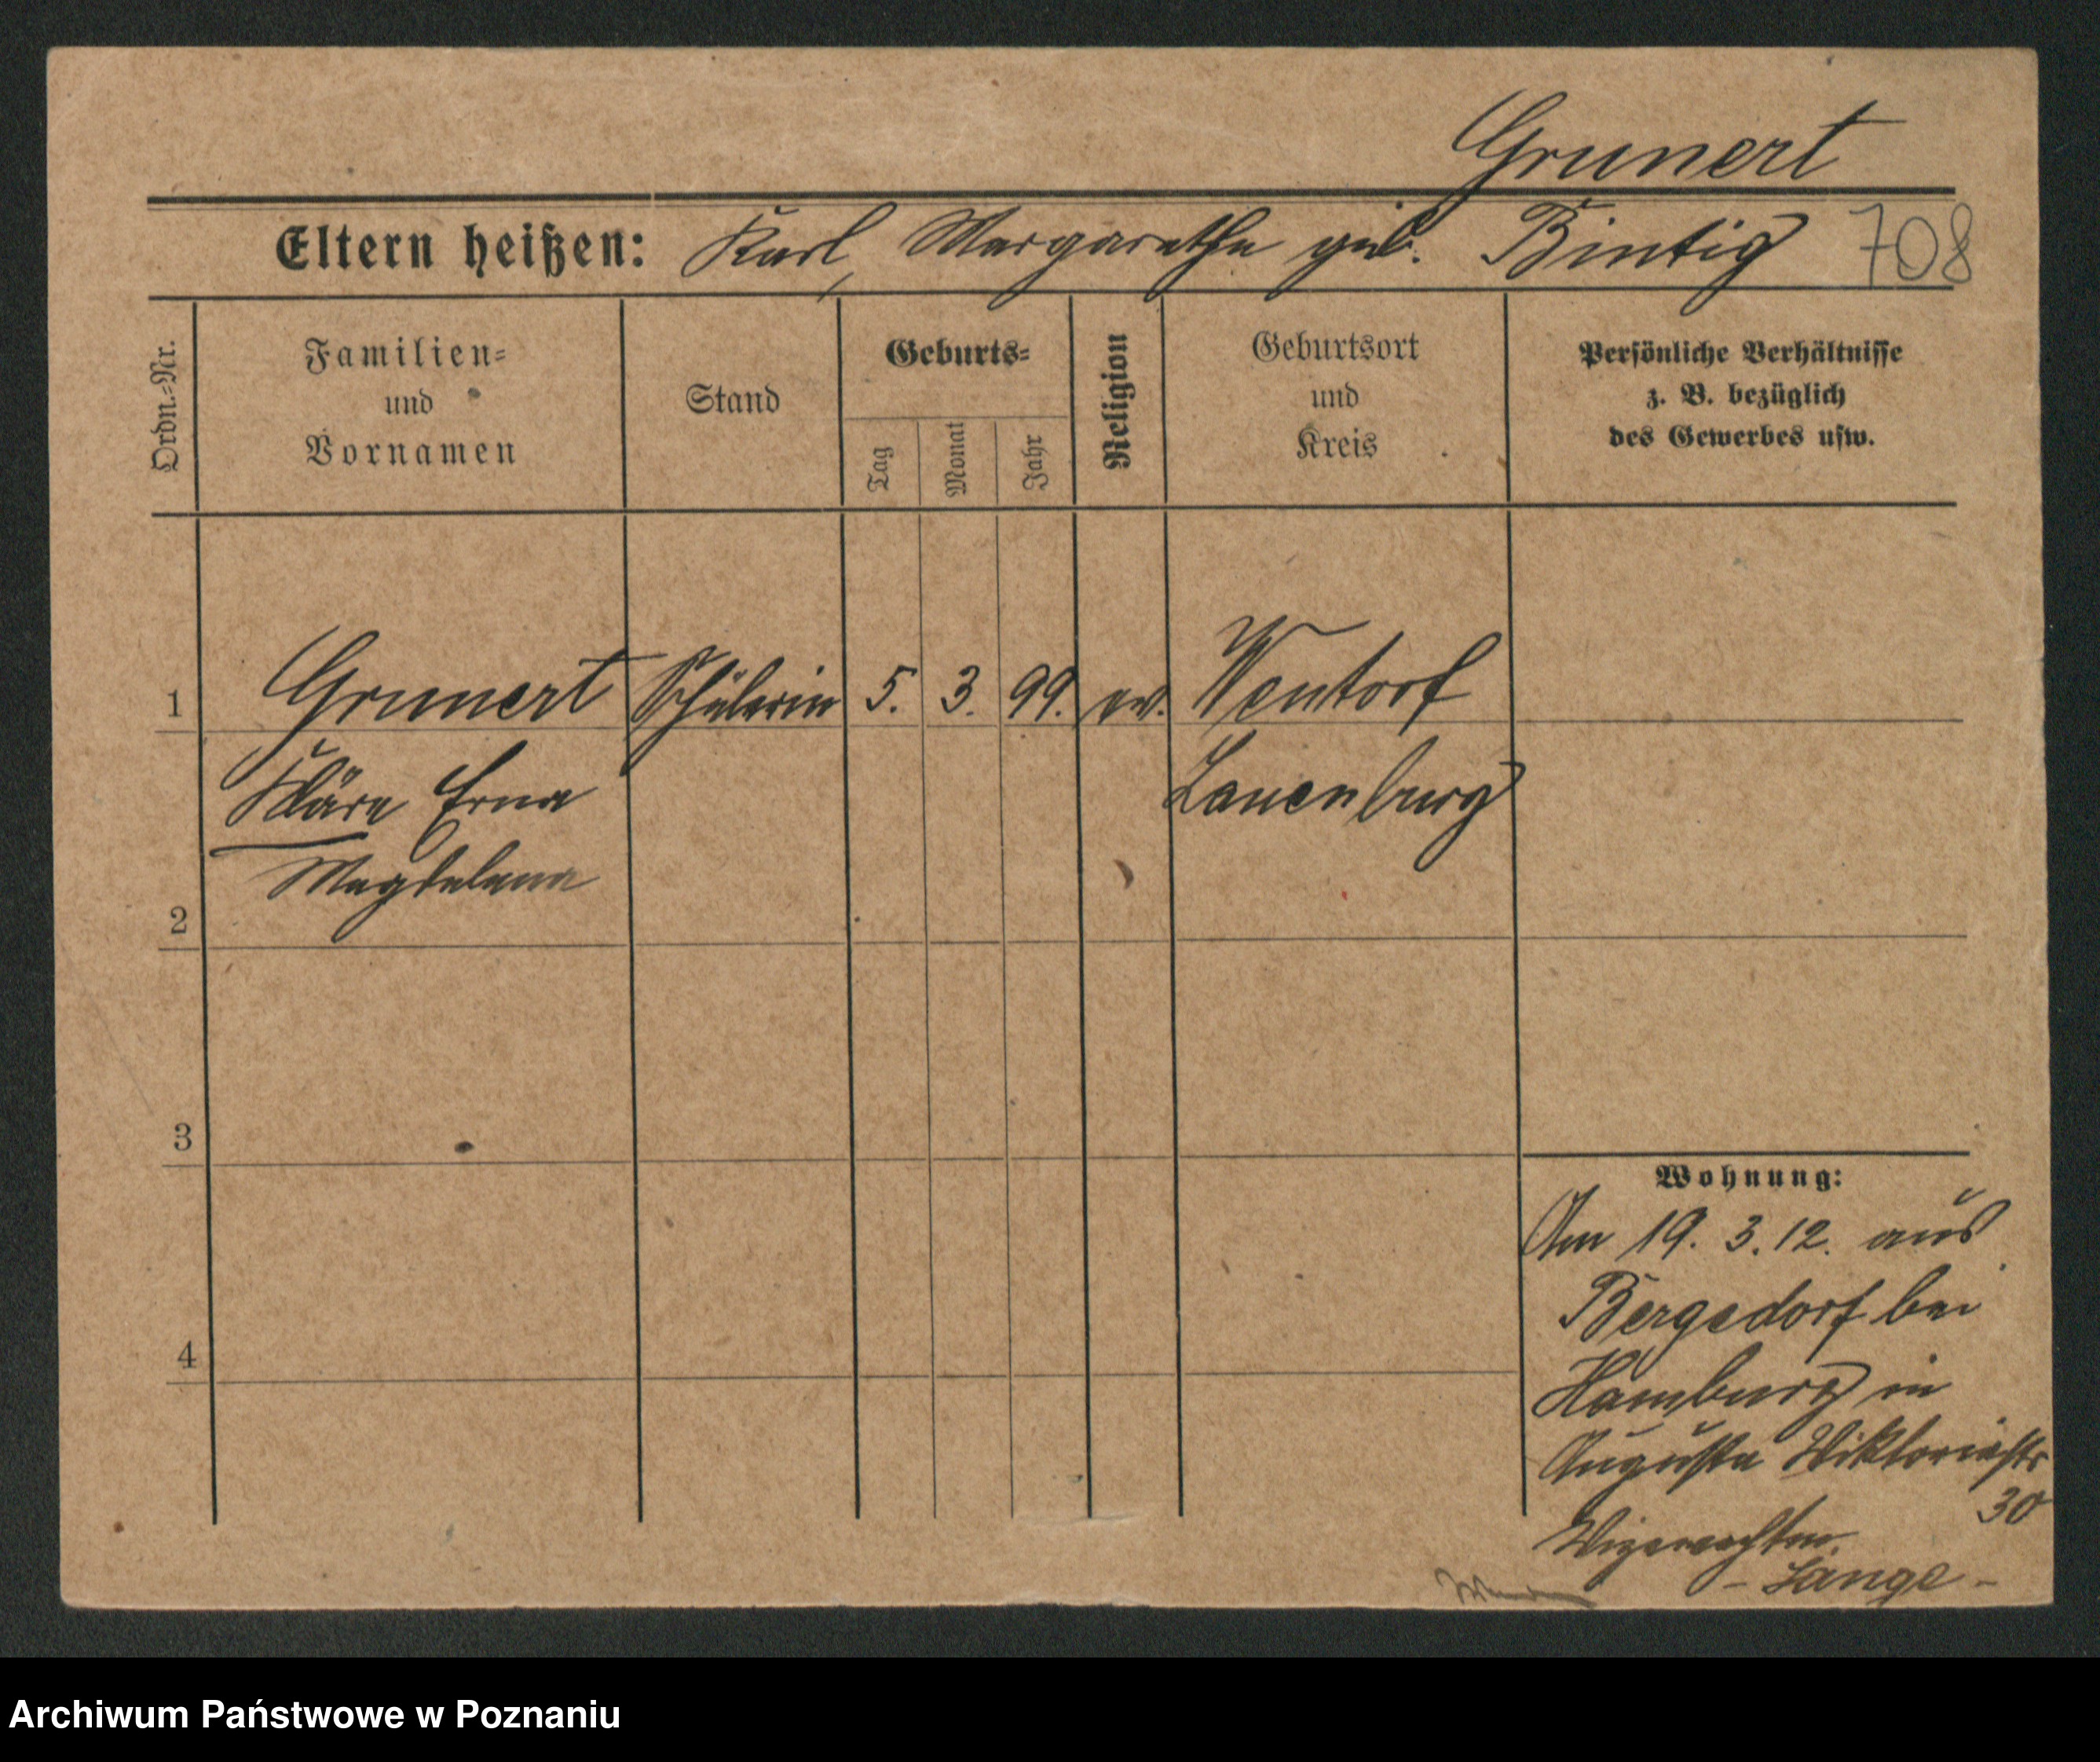 Grunert
Eltern heißen: Karl, Margarethe geb. Bintig 708
Ordn.=Nr.
Familien=
und
Vornamen
Stand
Geburts=
Tag
Monat
Jahr
Religion
Geburtsort
und
Kreis
Persönliche Verhältnisse
z. B. bezüglich
des Gewerbes usw.
1 Grunert Schülerin 5. 3. 99. ev. Wentorf
Kläre Erna Lauenburg
Magdalena
2
3
4
Wohnung:
Am 19. 3. 12. aus
Bergedorf bei
Hamburg in
Auguste Viktoriastr
30
- Lange -
Archiwum Państwowe w Poznaniu